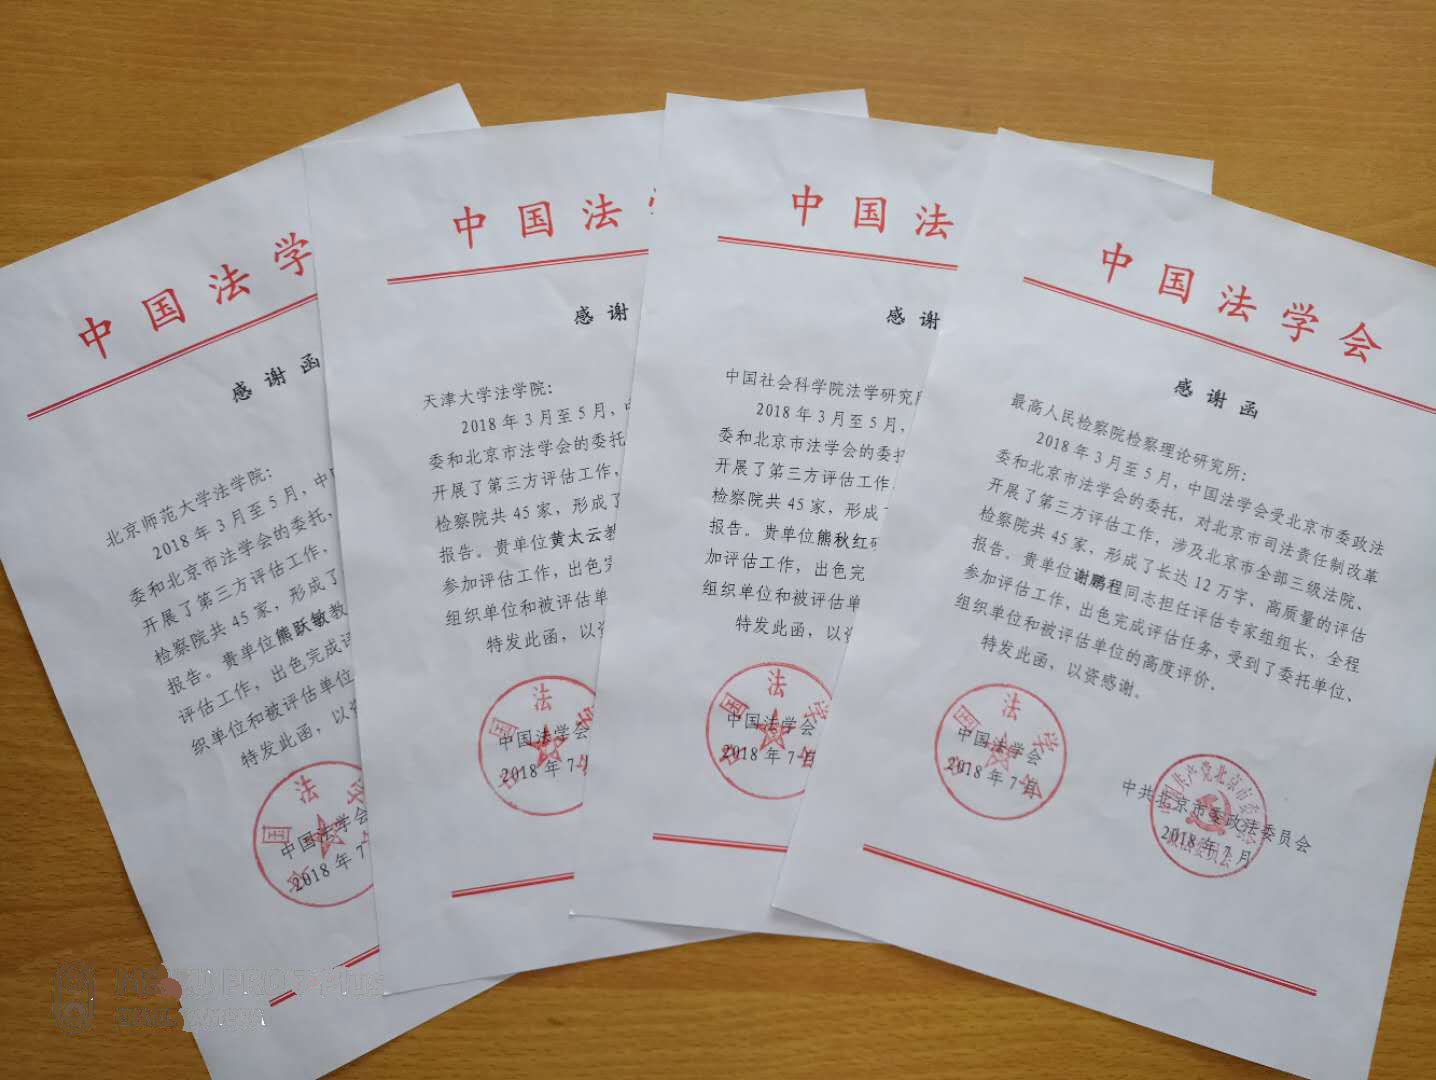 中国法学
感谢函
北京师范大学法学院：
2018年3月至5月，中
委和北京市法学会的委托，
开展了第三方评估工作，
检察院共45家，形成了
报告。贵单位熊跃敏教
评估工作，出色完成评
织单位和被评估单位
特发此函，以
中国法学会
2018年7
中国法
感谢
天津大学法学院：
2018年3月至5月，
委和北京市法学会的委托
开展了第三方评估工作，
检察院共45家，形成了
报告。贵单位黄太云教
参加评估工作，出色完
组织单位和被评估单
特发此函，以
中国法学会
2018年7月
中国法
感谢
中国社会科学院法学研究所
2018年3月至5月，
委和北京市法学会的委托
开展了第三方评估工作
检察院共45家，形成了
报告。贵单位熊秋红研
加评估工作，出色完
组织单位和被评估单
特发此函，以资
中国法学会
2018年7月
中国法学会
感谢函
最高人民检察院检察理论研究所：
2018年3月至5月，中国法学会受北京市委政法
委和北京市法学会的委托，对北京市司法责任制改革
开展了第三方评估工作，涉及北京市全部三级法院、
检察院共45家，形成了长达12万字、高质量的评估
报告。贵单位谢鹏程同志担任评估专家组组长，全程
参加评估工作，出色完成评估任务，受到了委托单位、
组织单位和被评估单位的高度评价。
特发此函，以资感谢。
中国法学会
2018年7月
中共北京市委政法委员会
2018年7月
中国共产党北京市委员会
政法委员会